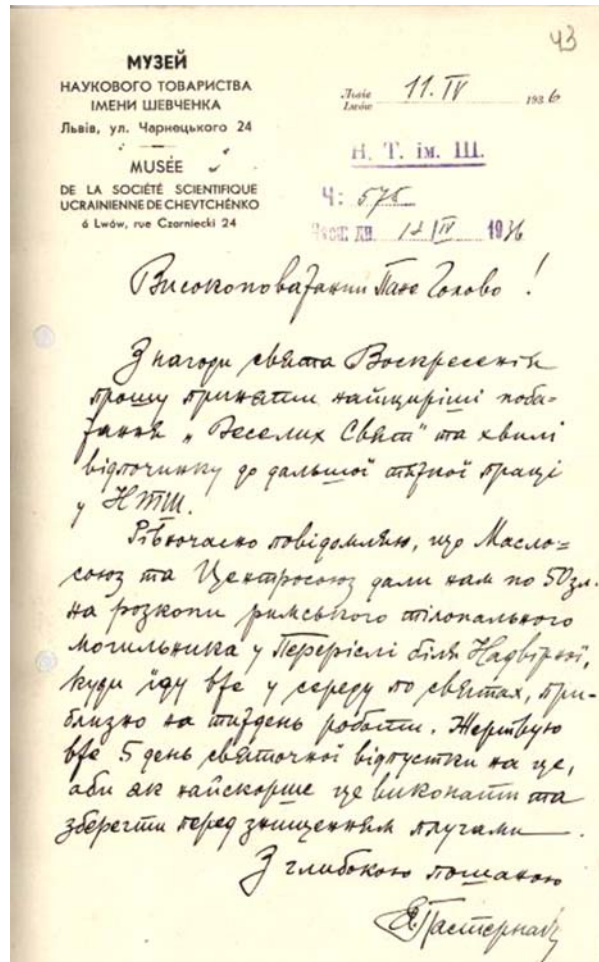 43
МУЗЕЙ
НАУКОВОГО ТОВАРИСТВА
ІМЕНИ ШЕВЧЕНКА
Львів, ул. Чарнецького 24
MUSÉE
DE LA SOCIÉTÉ SCIENTIFIQUE
UCRAINIENNE DE CHEVTCHÉNKO
á Lwów, rue Czarniecki 24
Львів
Lwów 11. IV 1936
Н. Т. ім. Ш.
Ч: 575
дн. 12 IV 1936
Високоповажаний Пане Голово!
З нагоди свята Воскресення
прошу приняти найщиріші поба-
жання „Веселих Свят" та хвилі
відпочинку до дальшої тяжкої праці
у НТШ.
Рівночасно повідомляю, що Масло-
союз та Центросоюз дали нам по 50 зл.
на розкопи римського тілопального
могильника у Перерослі біля Надвірної,
куди їду вже у середу по святах, при-
близно на тиждень роботи. Жертвую
вже 5 день святочної відпустки на це,
аби як найскорше це виконати та
зберегти перед знищенням плугами.
З глибокою пошаною
Я. Пастернак